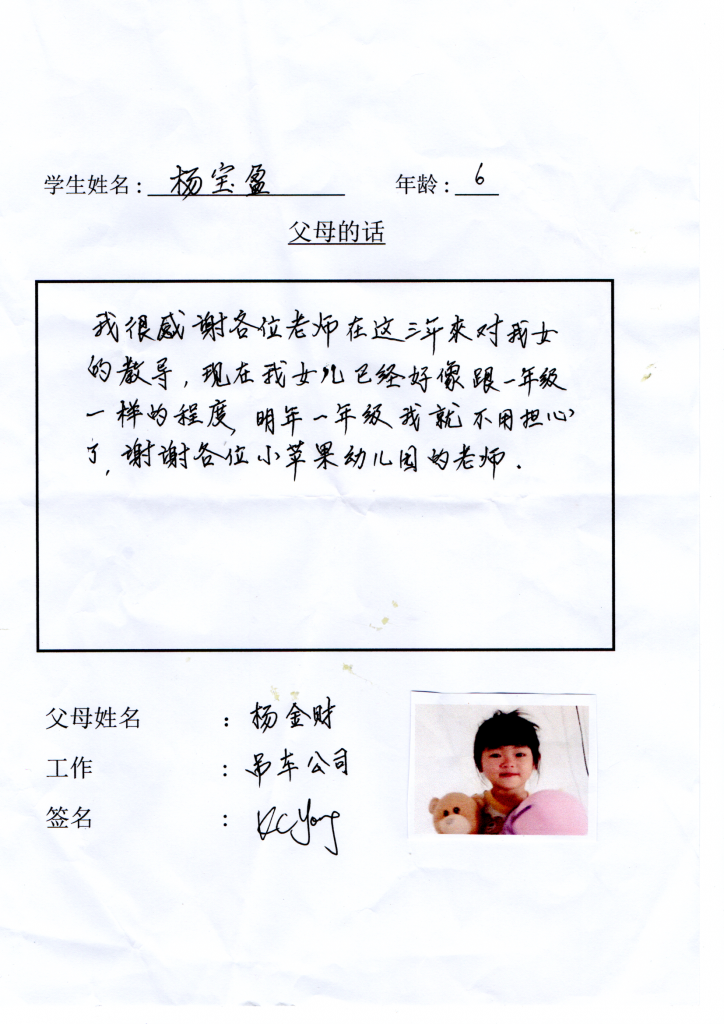 学生姓名：杨宝盈 年龄：6
父母的话
我很感谢各位老师在这三年来对我女
的教导，现在我女儿已经好像跟一年级
一样的程度，明年一年级我就不用担心
了，谢谢各位小苹果幼儿园的老师．
父母姓名 ：杨金财
工作 ：吊车公司
签名 ：KC Yong